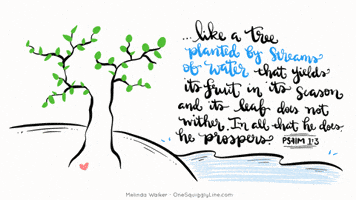 ...like a tree
planted by streams
of water that yields
its fruit in its season
and its leaf does not
wither. In all that he does,
he prospers PSALM 1:3
Melinda Walker - OneSquigglyLine.com